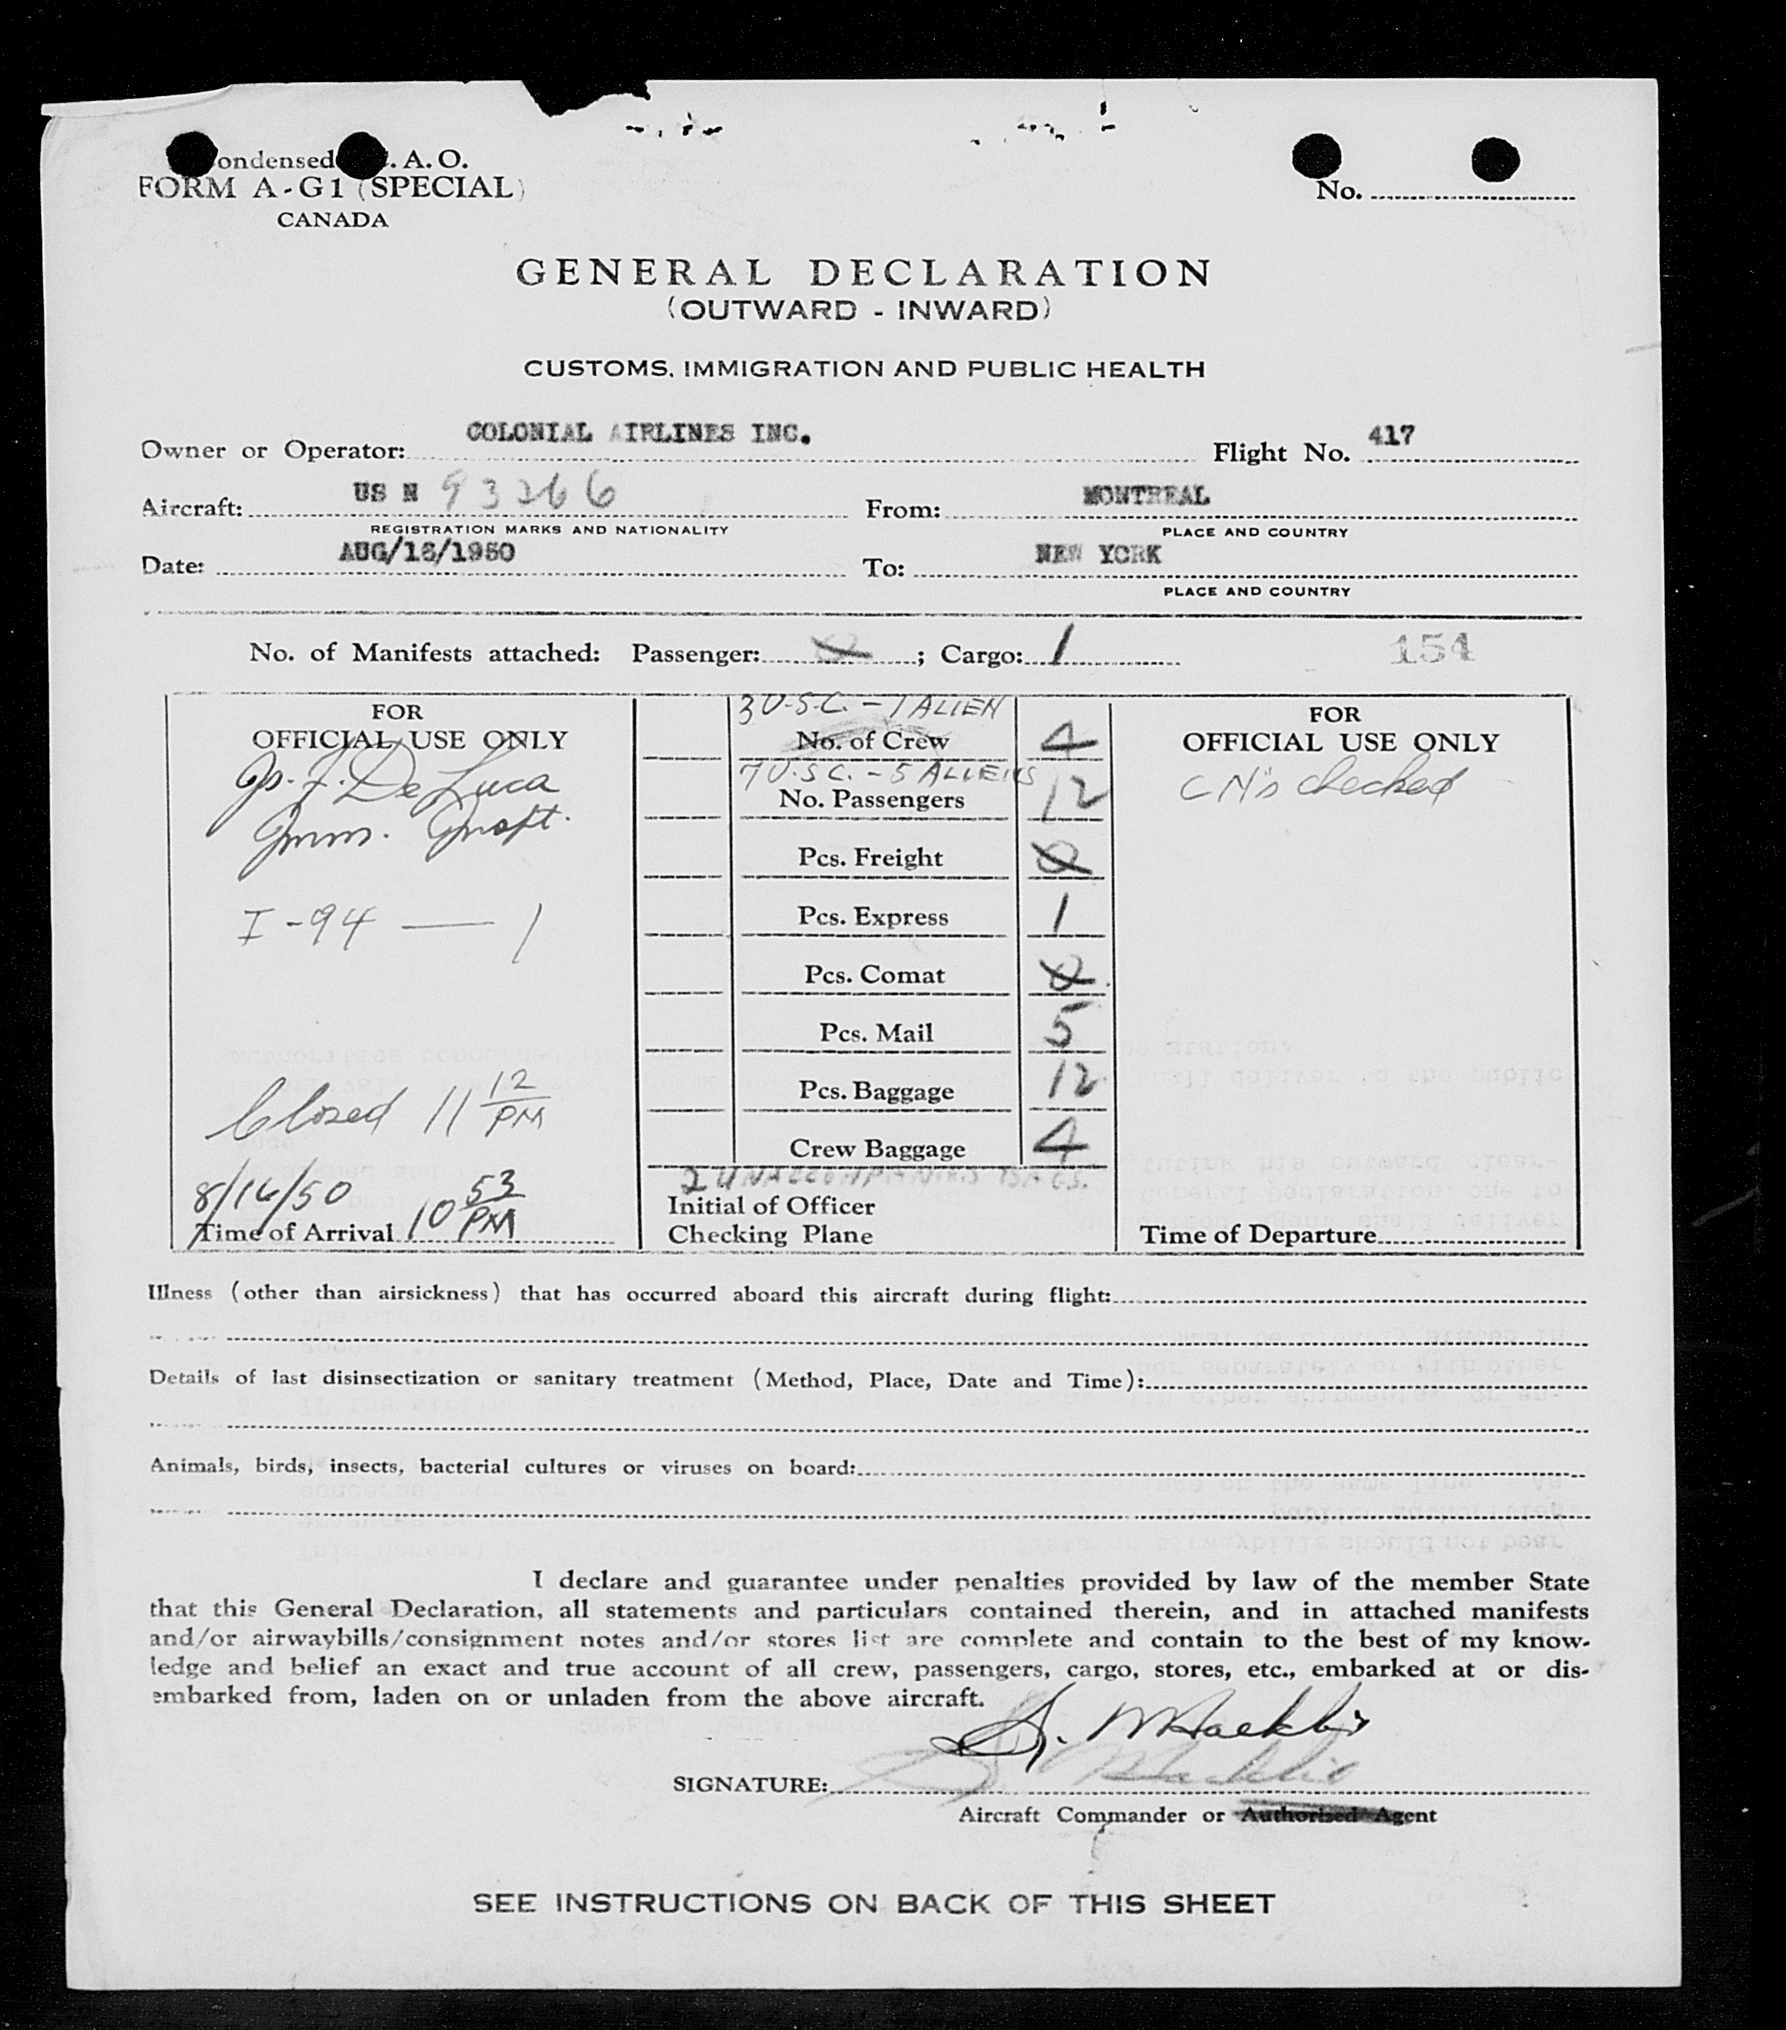 ondensed . A. O.
FORM A-G1 (SPECIAL)
CANADA
No.
GENERAL DECLARATION
(OUTWARD - INWARD)
CUSTOMS, IMMIGRATION AND PUBLIC HEALTH
Owner or Operator: COLONIAL AIRLINES INC. Flight No. 417
Aircraft: US N 93266 From: MONTREAL
REGISTRATION MARKS AND NATIONALITY PLACE AND COUNTRY
Date: AUG/16/1950 To: NEW YORK
PLACE AND COUNTRY
No. of Manifests attached: Passenger: 0 ; Cargo: 1 154
FOR
OFFICIAL USE ONLY
De Luca
Imm. Inspt.
I-94 — 1
Closed 11 12 PM
8/16/50
Time of Arrival 10 53 PM
3 U.S.C. - 1 ALIEN
No. of Crew 4
7 U.S.C. - 5 ALIENS
No. Passengers 12
Pcs. Freight 0
Pcs. Express 1
Pcs. Comat 0
Pcs. Mail 5
Pcs. Baggage 12
Crew Baggage 4
2 UNACCOMPANIED BAGS.
Initial of Officer
Checking Plane
FOR
OFFICIAL USE ONLY
CN's checked
Time of Departure
Illness (other than airsickness) that has occurred aboard this aircraft during flight:
Details of last disinsectization or sanitary treatment (Method, Place, Date and Time):
Animals, birds, insects, bacterial cultures or viruses on board:
I declare and guarantee under penalties provided by law of the member State
that this General Declaration, all statements and particulars contained therein, and in attached manifests
and/or airwaybills/consignment notes and/or stores list are complete and contain to the best of my know-
ledge and belief an exact and true account of all crew, passengers, cargo, stores, etc., embarked at or dis-
embarked from, laden on or unladen from the above aircraft.
SIGNATURE:
Aircraft Commander or Authorized Agent
SEE INSTRUCTIONS ON BACK OF THIS SHEET